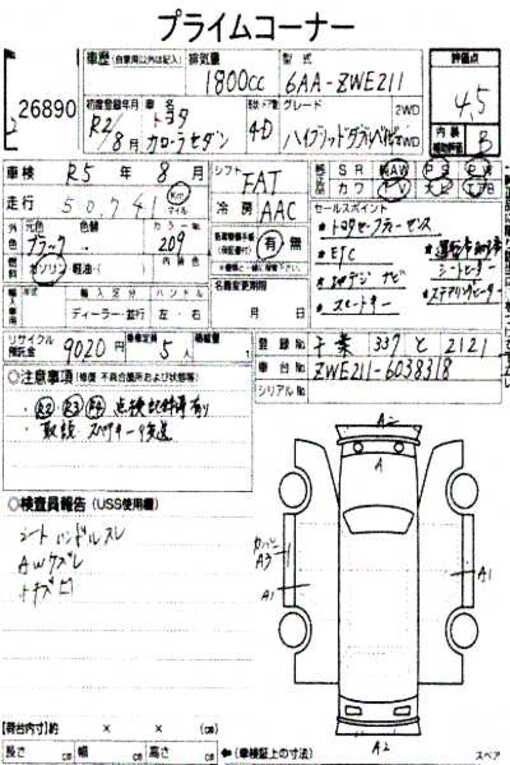 プライムコーナー
26890
車歴 (自家用以外は記入)
排気量 1800cc
型式 6AA-ZWE211
評価点 4.5
初度登録年月 R2/8月
車名 トヨタ カローラセダン
4D
グレード ハイブリッドダブルバイビー
2WD
4WD
内装 B
車検 R5年8月
シフト FAT
SR AW PS PW
カワ TV ナビ エアB
走行 50,741 Km マイル
冷房 AAC
セールスポイント
外色 元色 ブラック 色替 カラーNo. 209
(保証書付) 有・無
・トヨタセーフティーセンス
・ETC
・地デジ ナビ
・スピードキー
・シートヒーター
・ステアリングヒーター
燃料 ガソリン・軽油・( ) 内装色
名義変更期限
月 日
輸入車 年式 輸入区分 ハンドル
ディーラー・並行 左・右
リサイクル預託金 9020円
乗車定員 5人
積載量 t
登録No. 千葉 337 と 2121
車台No. ZWE211-6038318
シリアルNo.
◎注意事項 (修復・不具合箇所および状態等)
・R2 R3 R4 点検記録簿有り
・取説 スペアキー後送
◎検査員報告 (USS使用欄)
シート ハンドルスレ
AWケズレ
A2
A
カバー A3
A1
A1
A2
【荷台内寸】約 × × (㎝)
長さ ㎝ 幅 ㎝ 高さ ㎝ ←(車検証上の寸法)
スペア